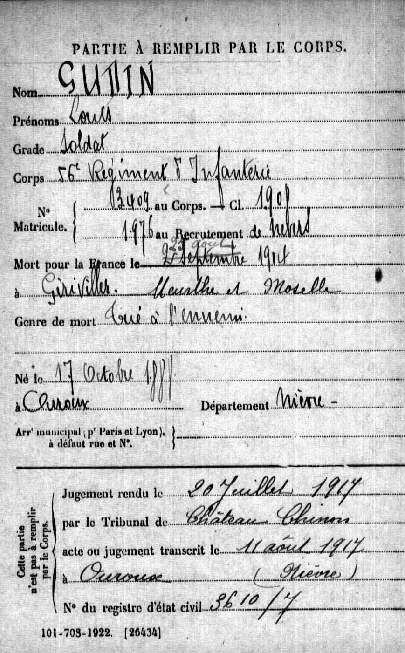 PARTIE À REMPLIR PAR LE CORPS.
Nom GUDIN
Prénoms Louis
Grade Soldat
Corps 56e Régiment d'Infanterie
N° Matricule. { au Corps. — Cl. 1908
1976 au Recrutement de Nevers
23 août
Mort pour la France le 2 Septembre 1914
à Giriviller. Meurthe et Moselle
Genre de mort Tué à l'ennemi.
Né le 17 Octobre
à Ouroux Département Nièvre -
Arrt municipal (pr Paris et Lyon), à défaut rue et N°. {
Cette partie n'est pas à remplir par le Corps.
Jugement rendu le 20 Juillet 1917
par le Tribunal de Château Chinon
acte ou jugement transcrit le 11 août 1917
à Ouroux (Nièvre)
N° du registre d'état civil 3610/7
101-708-1922. [26434]